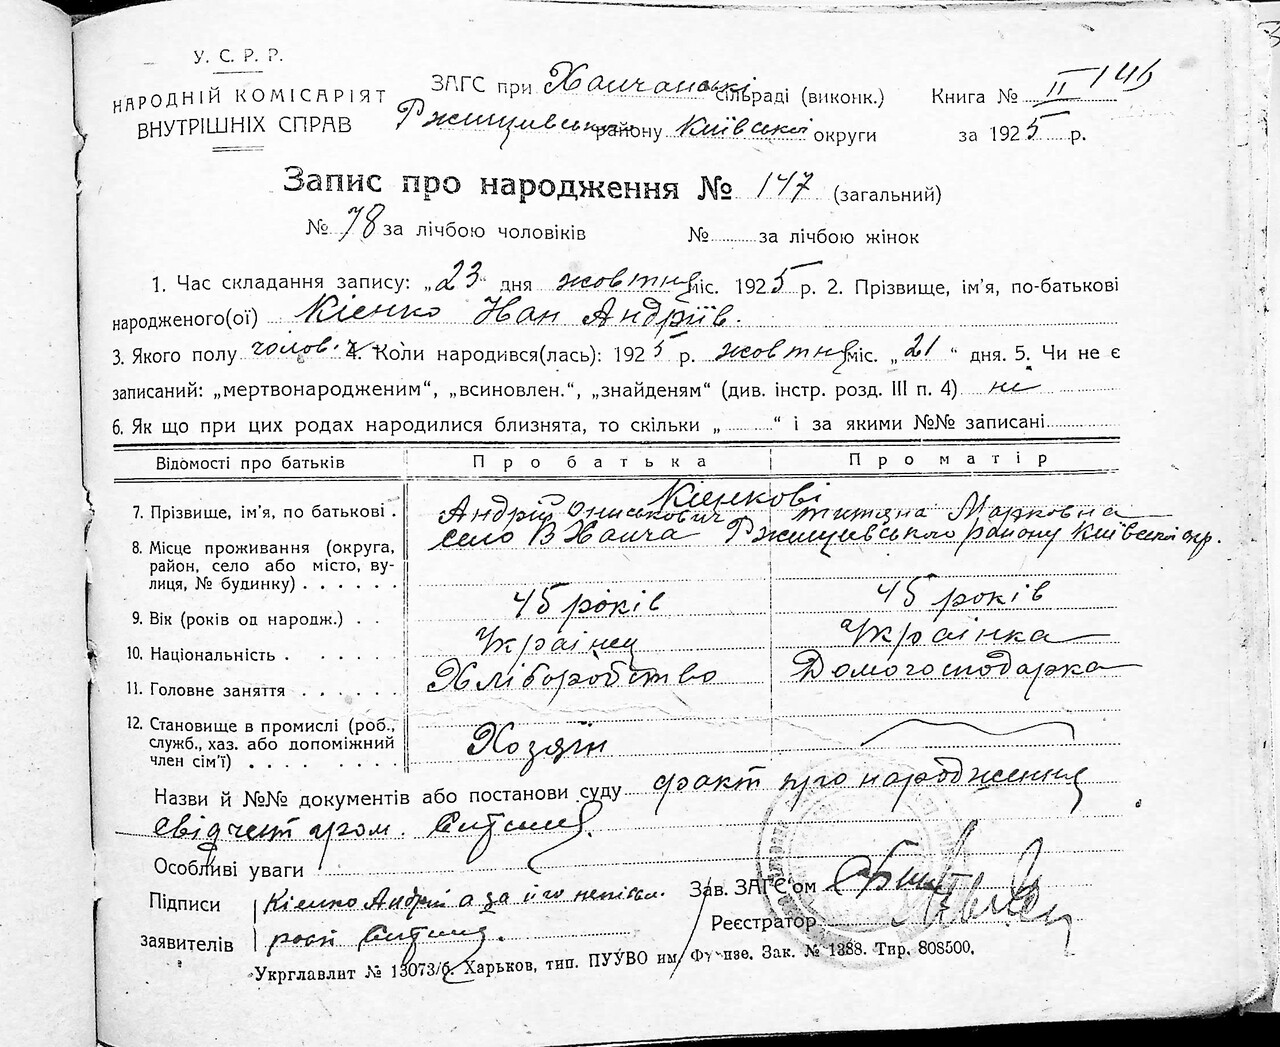 У. С. Р. Р.
НАРОДНІЙ КОМІСАРІЯТ
ВНУТРІШНІХ СПРАВ
ЗАГС при Халчанські сільраді (виконк.)
Ржищевськ району Київської округи
Книга № II 146
за 1925 р.
Запис про народження № 147 (загальний)
№ 78 за лічбою чоловіків № за лічбою жінок
1. Час складання запису: „23“ дня жовтня міс. 1925 р. 2. Прізвище, ім'я, по-батькові
народженого(ої) Кієнко Іван Андріїв.
3. Якого полу чолов. 4. Коли народився(лась): 1925 р. жовтня міс. „21“ дня. 5. Чи не є
записаний: „мертвонародженим“, „всиновлен.“, „знайденям“ (див. інстр. розд. III п. 4) ні
6. Як що при цих родах народилися близнята, то скільки „ “ і за якими №№ записані
Відомості про батьків Про батька Про матір
Кієнкові
7. Прізвище, ім'я, по батькові . Андрій Онискович титяна Марковна
8. Місце проживання (округа, село В Халча Ржищевського району Київської окр.
район, село або місто, ву-
лиця, № будинку) . . . . . .
9. Вік (років од народж.) . . 45 років 45 років
10. Національність . . . . . Українец Українка
11. Головне заняття . . . . . Хліборобство Домогосподарка
12. Становище в промислі (роб.,
служб., хаз. або допоміжний Хозяїн
член сім'ї) . . . . . . . .
Назви й №№ документів або постанови суду факт про народження
свідчет гром.
Особливі уваги
Підписи Кієнко Андрій а за його неписм.
заявителів роспі
Зав. ЗАГС'ом
Реєстратор
Укрглавлит № 13073/б. Харьков, тип. ПУУВО им. Фрунзе. Зак. № 1388. Тир. 808500.